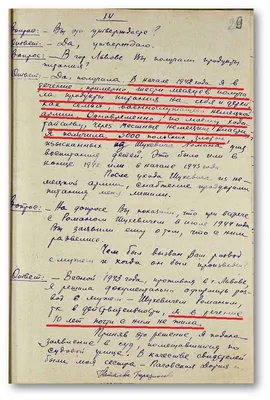 IV
29
Вопрос: - Вы это утверждаете?
Ответ: - Да, утверждаю.
Вопрос: - В гор. Львове Вы получали продукты
питания?
Ответ: - Да, получала. В начале 1942 года я в
течение примерно шести месяцев получа-
ла продукты питания на себя и детей,
как семья военнослужащего немецкой
армии. Одновременно, по моему хода-
тайству, через местные немецкие власти
я получила 3000 польских злотых,
взысканных с Шухевича Романа для
воспитания детей. Это было или в
конце 1942 или в начале 1943 года.
После ухода Шухевича из не-
мецкой армии, снабжение продуктами
питания меня лишили.
Вопрос: - На допросе Вы показали, что при встрече
с Романом Шухевичем в июле 1944 года
Вы заявили ему о том, что с ним
развелись.
Чем был вызван Ваш развод
с мужем и когда он был произведен?
Ответ: - Весной 1943 года, проживая в г. Львове,
я решила документально оформить раз-
вод с мужем - Шухевичем Романом,
т.к. в действительности, я в течение
10 лет почти с ним не жила.
Приняв это решение, я подала
заявление в суд, помещавшийся на
судовой улице. В качестве свидетелей
были моя сестра -